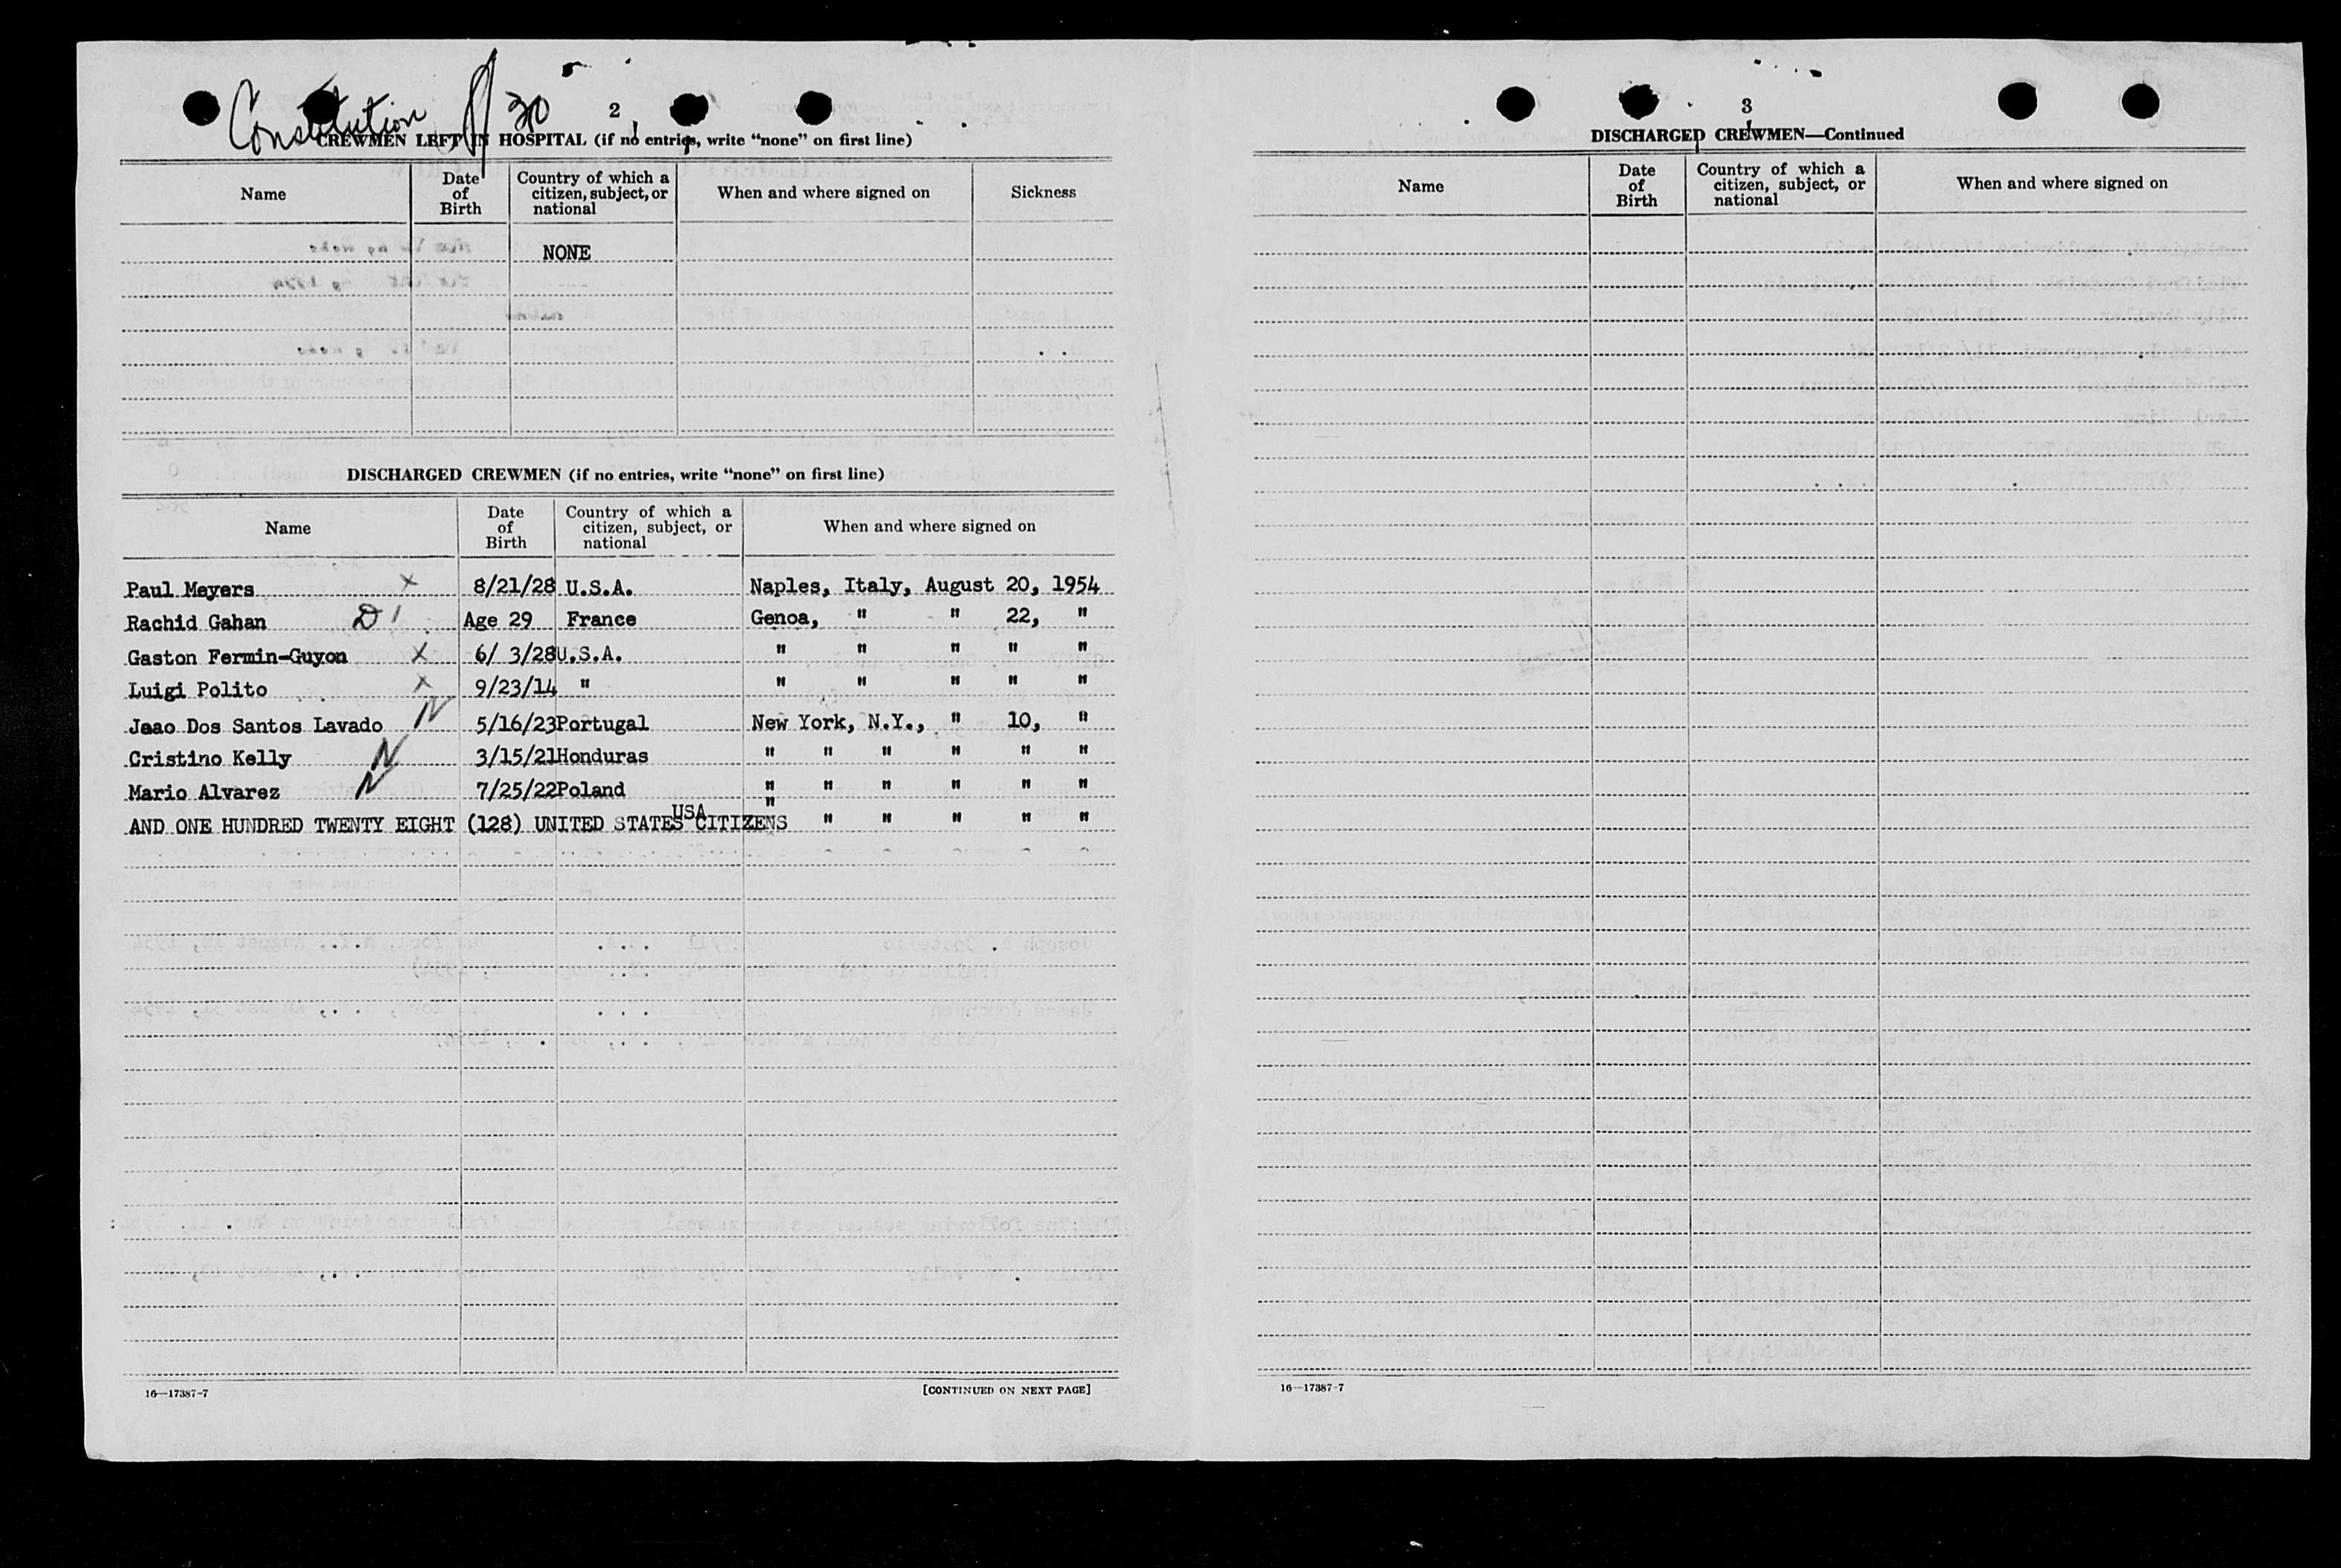 Constitution 30
2
CREWMEN LEFT IN HOSPITAL (if no entries, write “none” on first line)
Name
Date of Birth
Country of which a citizen, subject, or national
When and where signed on
Sickness
NONE
DISCHARGED CREWMEN (if no entries, write “none” on first line)
Name
Date of Birth
Country of which a citizen, subject, or national
When and where signed on
Paul Meyers X 8/21/28 U.S.A. Naples, Italy, August 20, 1954
Rachid Gahan D1 Age 29 France Genoa, " " 22, "
Gaston Fermin-Guyon X 6/ 3/28 U.S.A. " " " " "
Luigi Polito X 9/23/14 " " " " " "
Joao Dos Santos Lavado N 5/16/23 Portugal New York, N.Y., " 10, "
Cristino Kelly N 3/15/21 Honduras " " " " " "
Mario Alvarez N 7/25/22 Poland " " " " " "
USA "
AND ONE HUNDRED TWENTY EIGHT (128) UNITED STATES CITIZENS " " " " "
16—17387-7
[CONTINUED ON NEXT PAGE]
3
DISCHARGED CREWMEN—Continued
Name
Date of Birth
Country of which a citizen, subject, or national
When and where signed on
16—17387-7